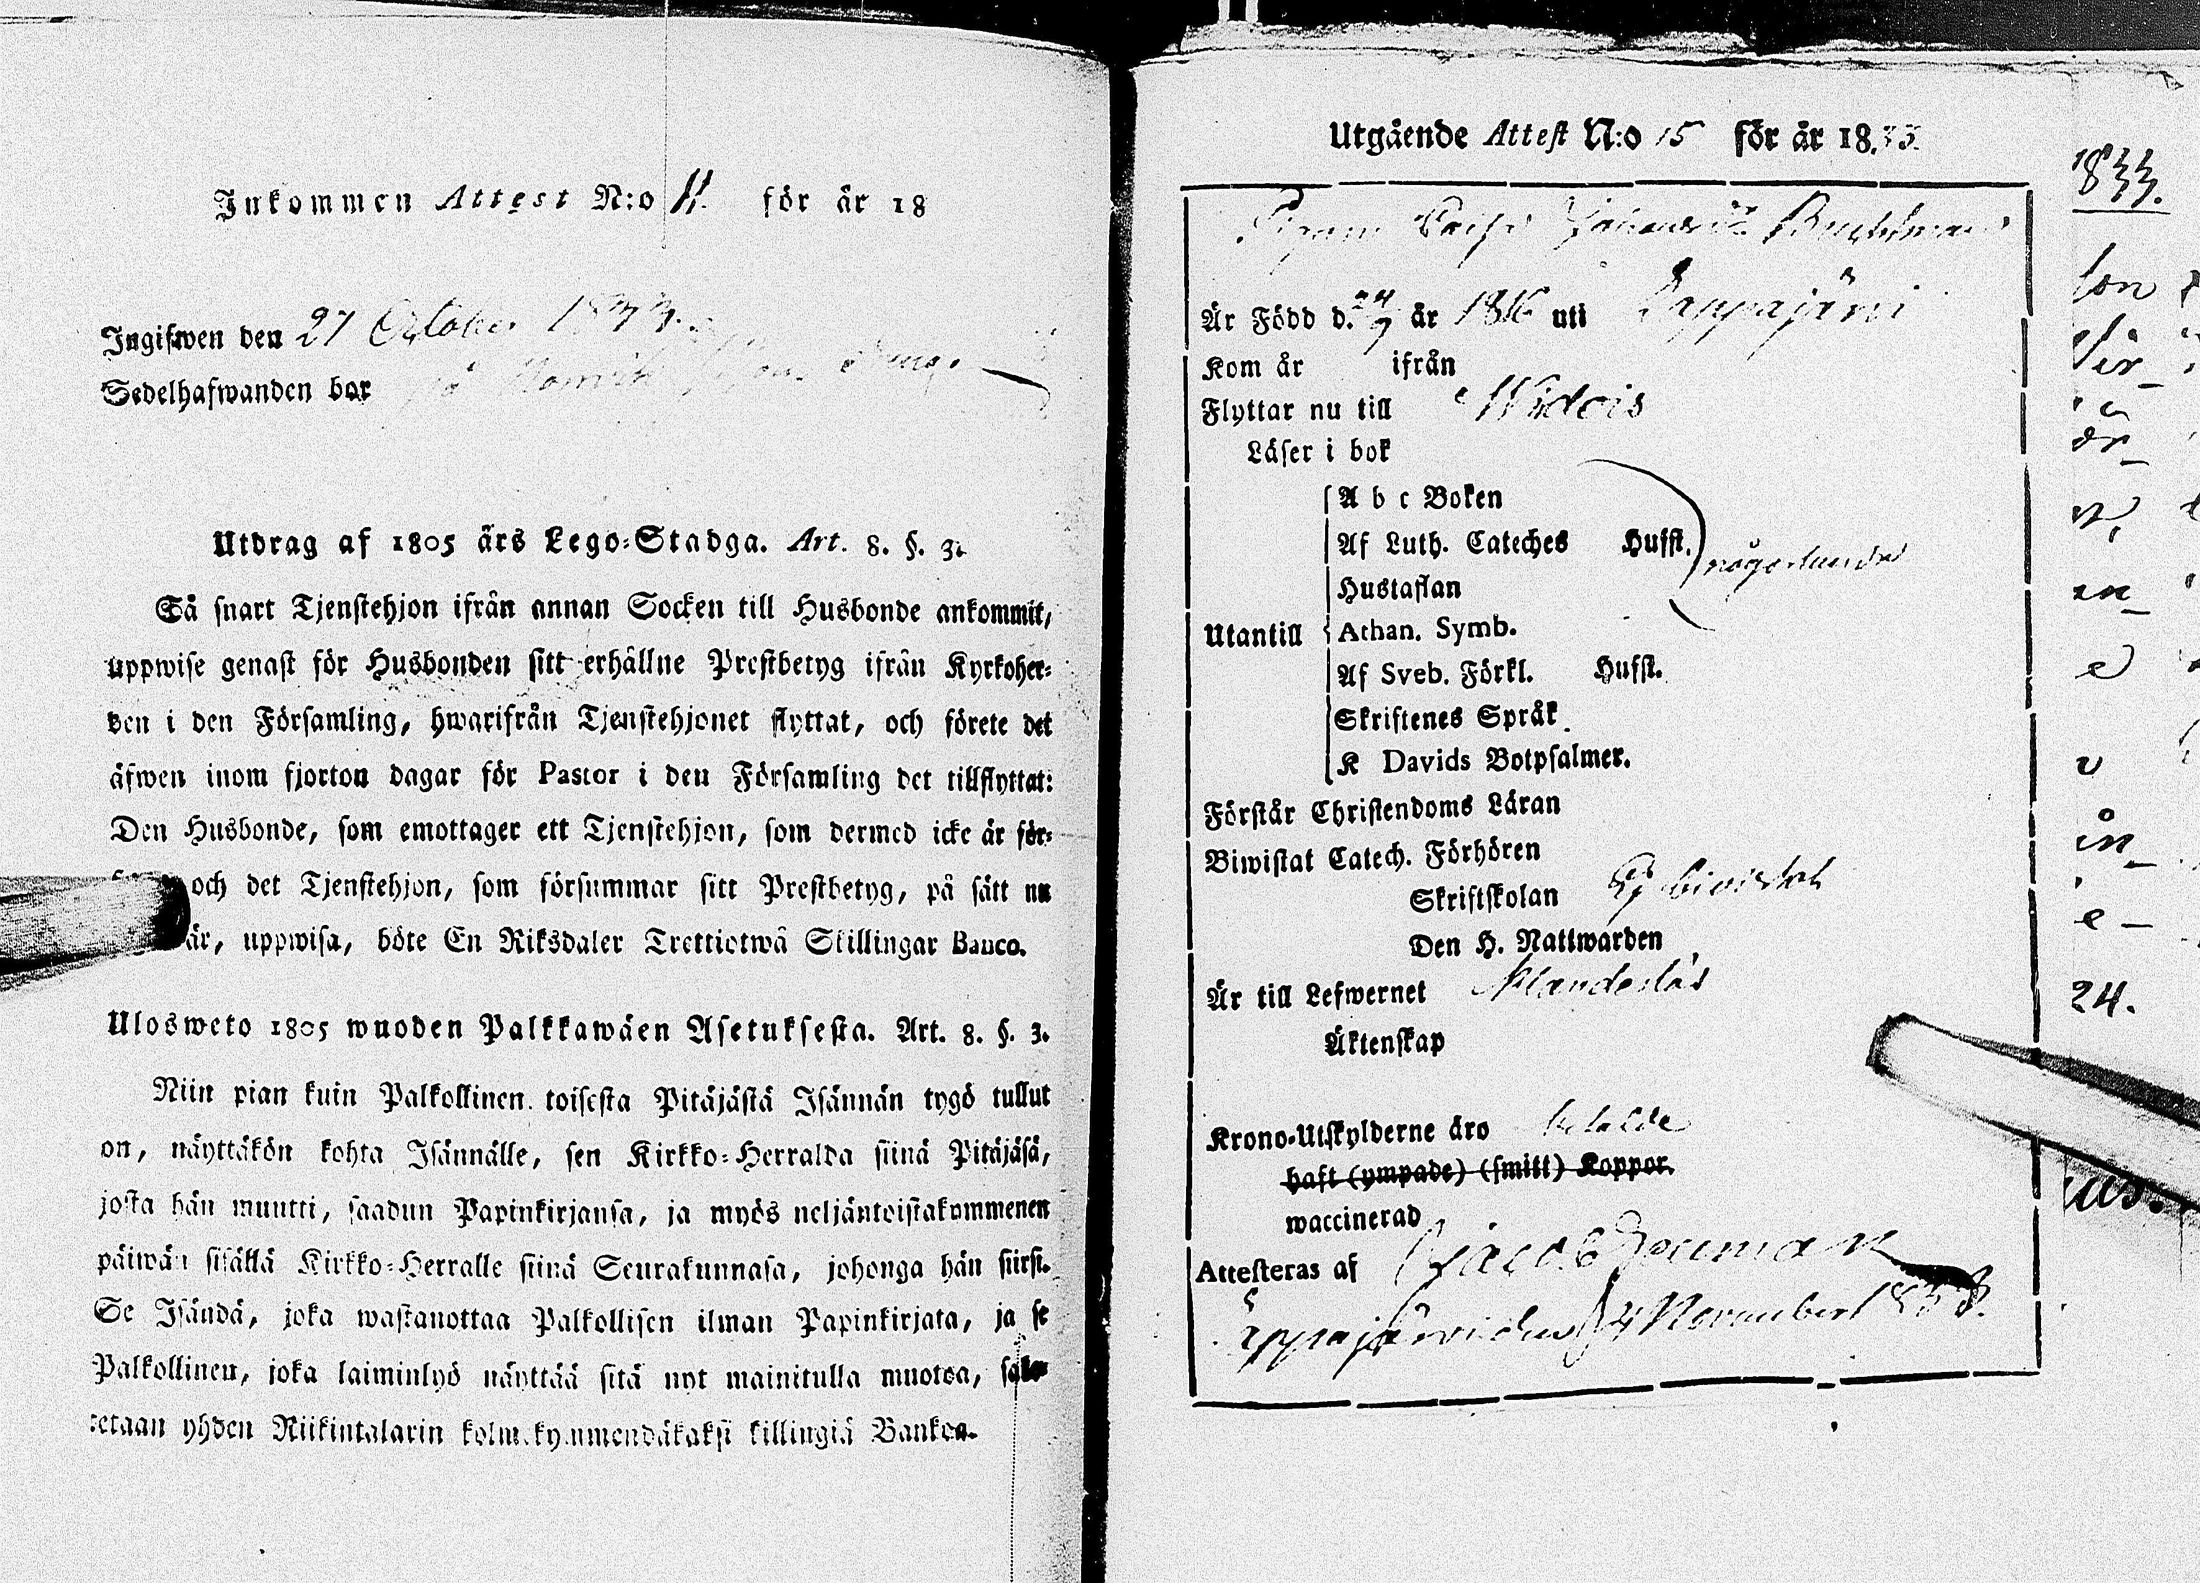 Inkommen Attest N:o 11. för år 18
Ingifwen den 27 October 1833.
Sedelhafwanden bor på
Utdrag af 1805 års Lego-Stadga. Art. 8. §. 3.
Så snart Tjenstehjon ifrån annan Socken till Husbonde ankommit,
uppwise genast för Husbonden sitt erhållne Prestbetyg ifrån Kyrkoher-
den i den Församling, hwarifrån Tjenstehjonet flyttat, och förete det
äfwen inom fjorton dagar för Pastor i den Församling det tillflyttat:
Den Husbonde, som emottager ett Tjenstehjon, som dermed icke är för-
och det Tjenstehjon, som försummar sitt Prestbetyg, på sätt nu
är, uppwisa, böte En Riksdaler Trettiotwå Skillingar Banco.
Ulosweto 1805 wuoden Palkkawäen Asetuksesta. Art. 8. §. 3.
Niin pian kuin Palkollinen toisesta Pitäjästä Isännän tygö tullut
on, näyttäkön kohta Isännälle, sen Kirkko-Herralda siinä Pitäjäsä,
josta hän muutti, saadun Papinkirjansa, ja myös neljäntoistakymmenen
päiwän sisällä Kirkko-Herralle siinä Seurakunnasa, johonga hän siirst.
Se Isändä, joka wastanottaa Palkollisen ilman Papinkirjata, ja se
Palkollinen, joka laiminlyö näyttää sitä nyt mainitulla muotoa, sako-
tetaan yhden Riikintalarin kolmekymmendäkaksi killingiä Bankoa.
Utgående Attest N:o 15 för år 1833.
Pigan Caisa
Är Född d. 24/7 år 1816 uti Lappajärvi
Kom år ifrån
Flyttar nu till
Läser i bok
A b c Boken
Af Luth. Cateches Hufst.
någorlunda
Hustaflan
Utantill Athan. Symb.
Af Sveb. Förkl. Hufst.
Skriftenes Språk
K Davids Botpsalmer.
Förstår Christendoms Läran
Biwistat Catech. Förhören
Skriftskolan Ej biwistat
Den H. Nattwarden
Är till Lefwernet klanderlös
Äktenskap
Krono-Utskylderne äro betalde
haft (ympade) (smitt) Koppor.
waccinerad
Attesteras af Jacob
Lappajärvi den 24 November 1833.
1833.
son
ör-
en-
e
v
ån-
e -
24.